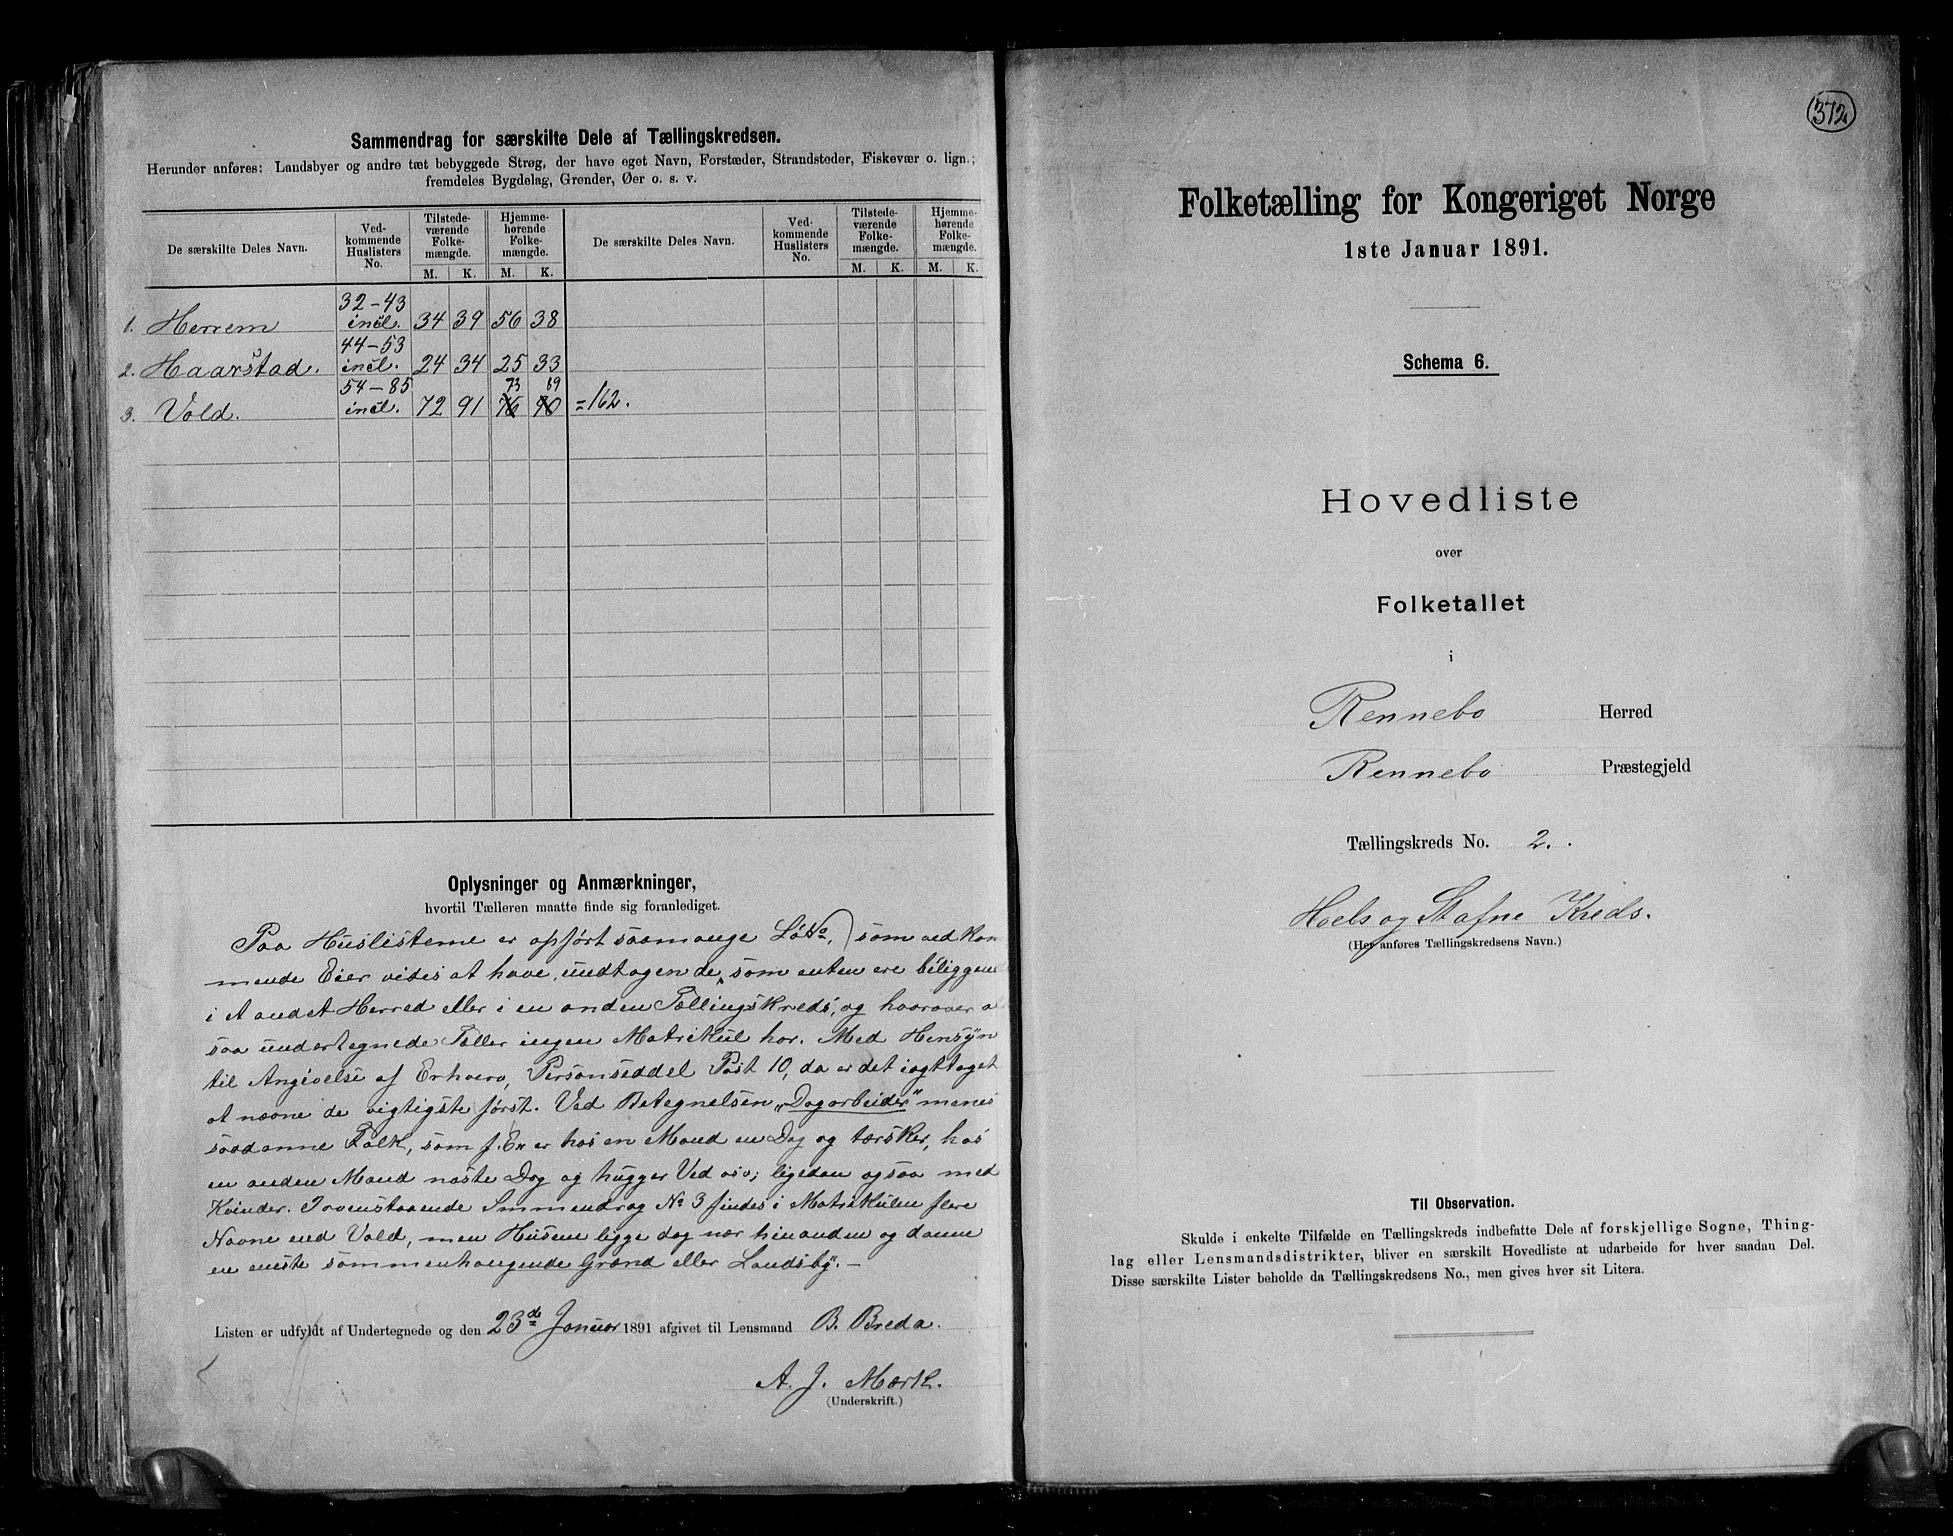 Sammendrag for særskilte Dele af Tællingskredsen.
Herunder anføres: Landsbyer og andre tæt bebyggede Strøg, der have eget Navn, Forstæder, Strandsteder, Fiskevær o. lign.;
fremdeles Bygdelag, Grender, Øer o. s. v.
De særskilte Deles Navn. Ved-kommende Huslisters No. Tilstede-værende Folke-mængde. Hjemme-hørende Folke-mængde. De særskilte Deles Navn. Ved-kommende Huslisters No. Tilstede-værende Folke-mængde. Hjemme-hørende Folke-mængde.
M. K. M. K. M. K. M. K.
1. Herrem 32-43 incl. 34 39 56 38
2. Haarstad. 44-53 incl. 24 34 25 33
73 89
3. Vold. 54-85 incl. 72 91 76 90 =162.
Oplysninger og Anmærkninger,
hvortil Tælleren maatte finde sig foranlediget.
Paa Huslisterne er opført saamange LøNo, som vedkom
mende Eier vides at have, undtagen de, som enten ere beliggende
i et andet Herred eller i en anden Tællingskreds, og hvorover
saa undertegnede Tæller ingen Matrikul har. Med Hensyn
til Angivelse af Erhverv, Personseddel Post 10, da er det iagttaget
at nævne de vigtigste først. Ved Betegnelsen "Dagarbeider" menes
saadanne Folk, som f. Ex er hos en Mand en Dag og tærsker, hos
en anden Mand næste Dag og hugger Ved osv; ligedan ogsaa med
Kvinder. I ovenstaaende Smmendrag No 3 findes i Matrikulen flere
Navne end Vold, men Husene ligge dog nær hinanden og danne
en eneste sammenhængende Grænd eller "Landsby". -
Listen er udfyldt af Undertegnede og den 23de Januar 1891 afgivet til Lensmand B. Breda.
A. J. Mærk.
(Underskrift.)
372
Folketælling for Kongeriget Norge
1ste Januar 1891.
Schema 6.
Hovedliste
over
Folketallet
i
Rennebo Herred
Rennebo Præstegjeld
Tællingskreds No. 2.
Hoels og Stafne Kreds.
(Her anføres Tællingskredsens Navn.)
Til Observation.
Skulde i enkelte Tilfælde en Tællingskreds indbefatte Dele af forskjellige Sogne, Thing-
lag eller Lensmandsdistrikter, bliver en særskilt Hovedliste at udarbeide for hver saadan Del.
Disse særskilte Lister beholde da Tællingskredsens No., men gives hver sit Litera.